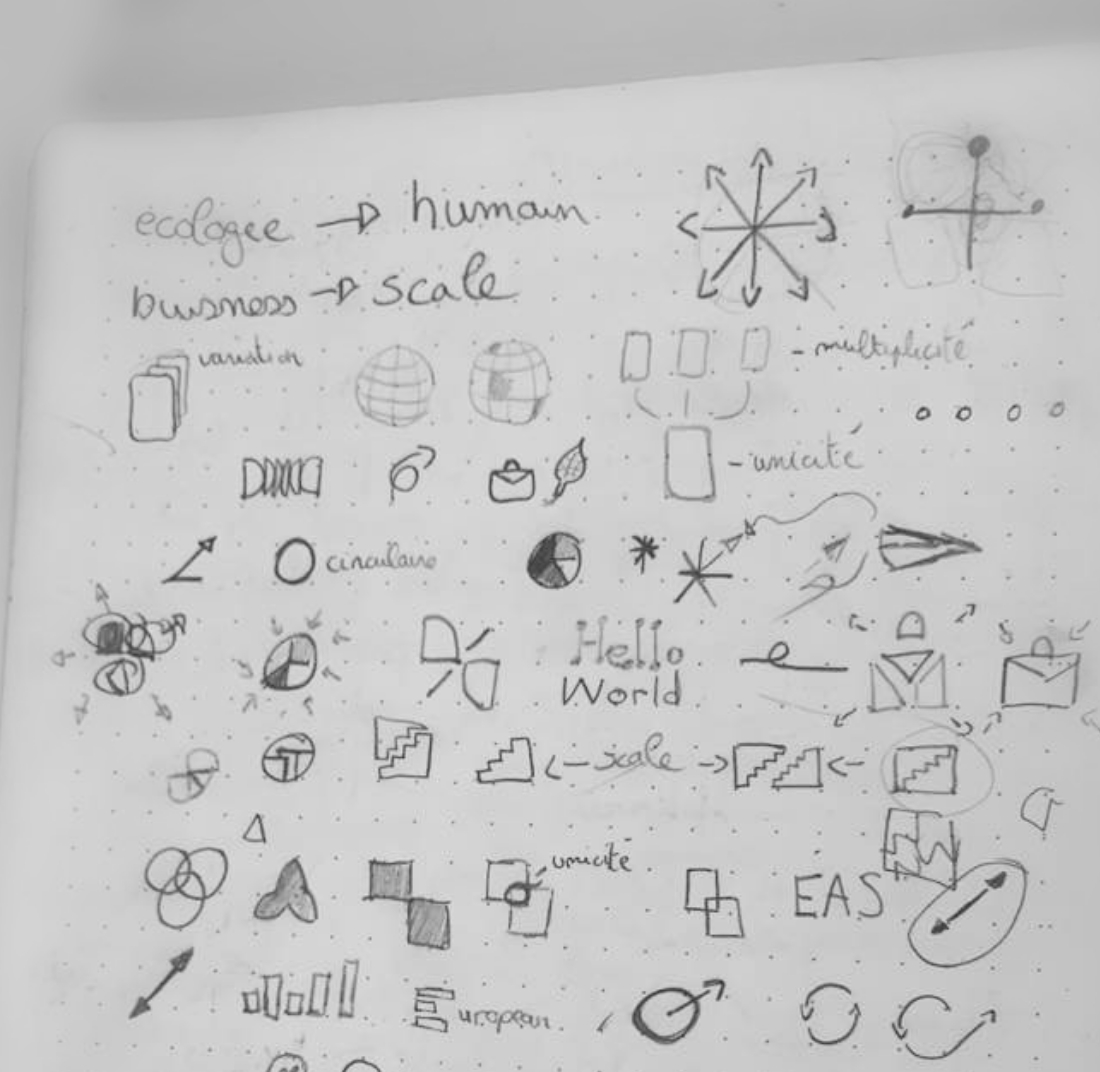 ecologee → humain
buisness → scale
variation
- multiplicité
- unicité
circulaire
Hello
World
← scale →
unicité
EAS
European